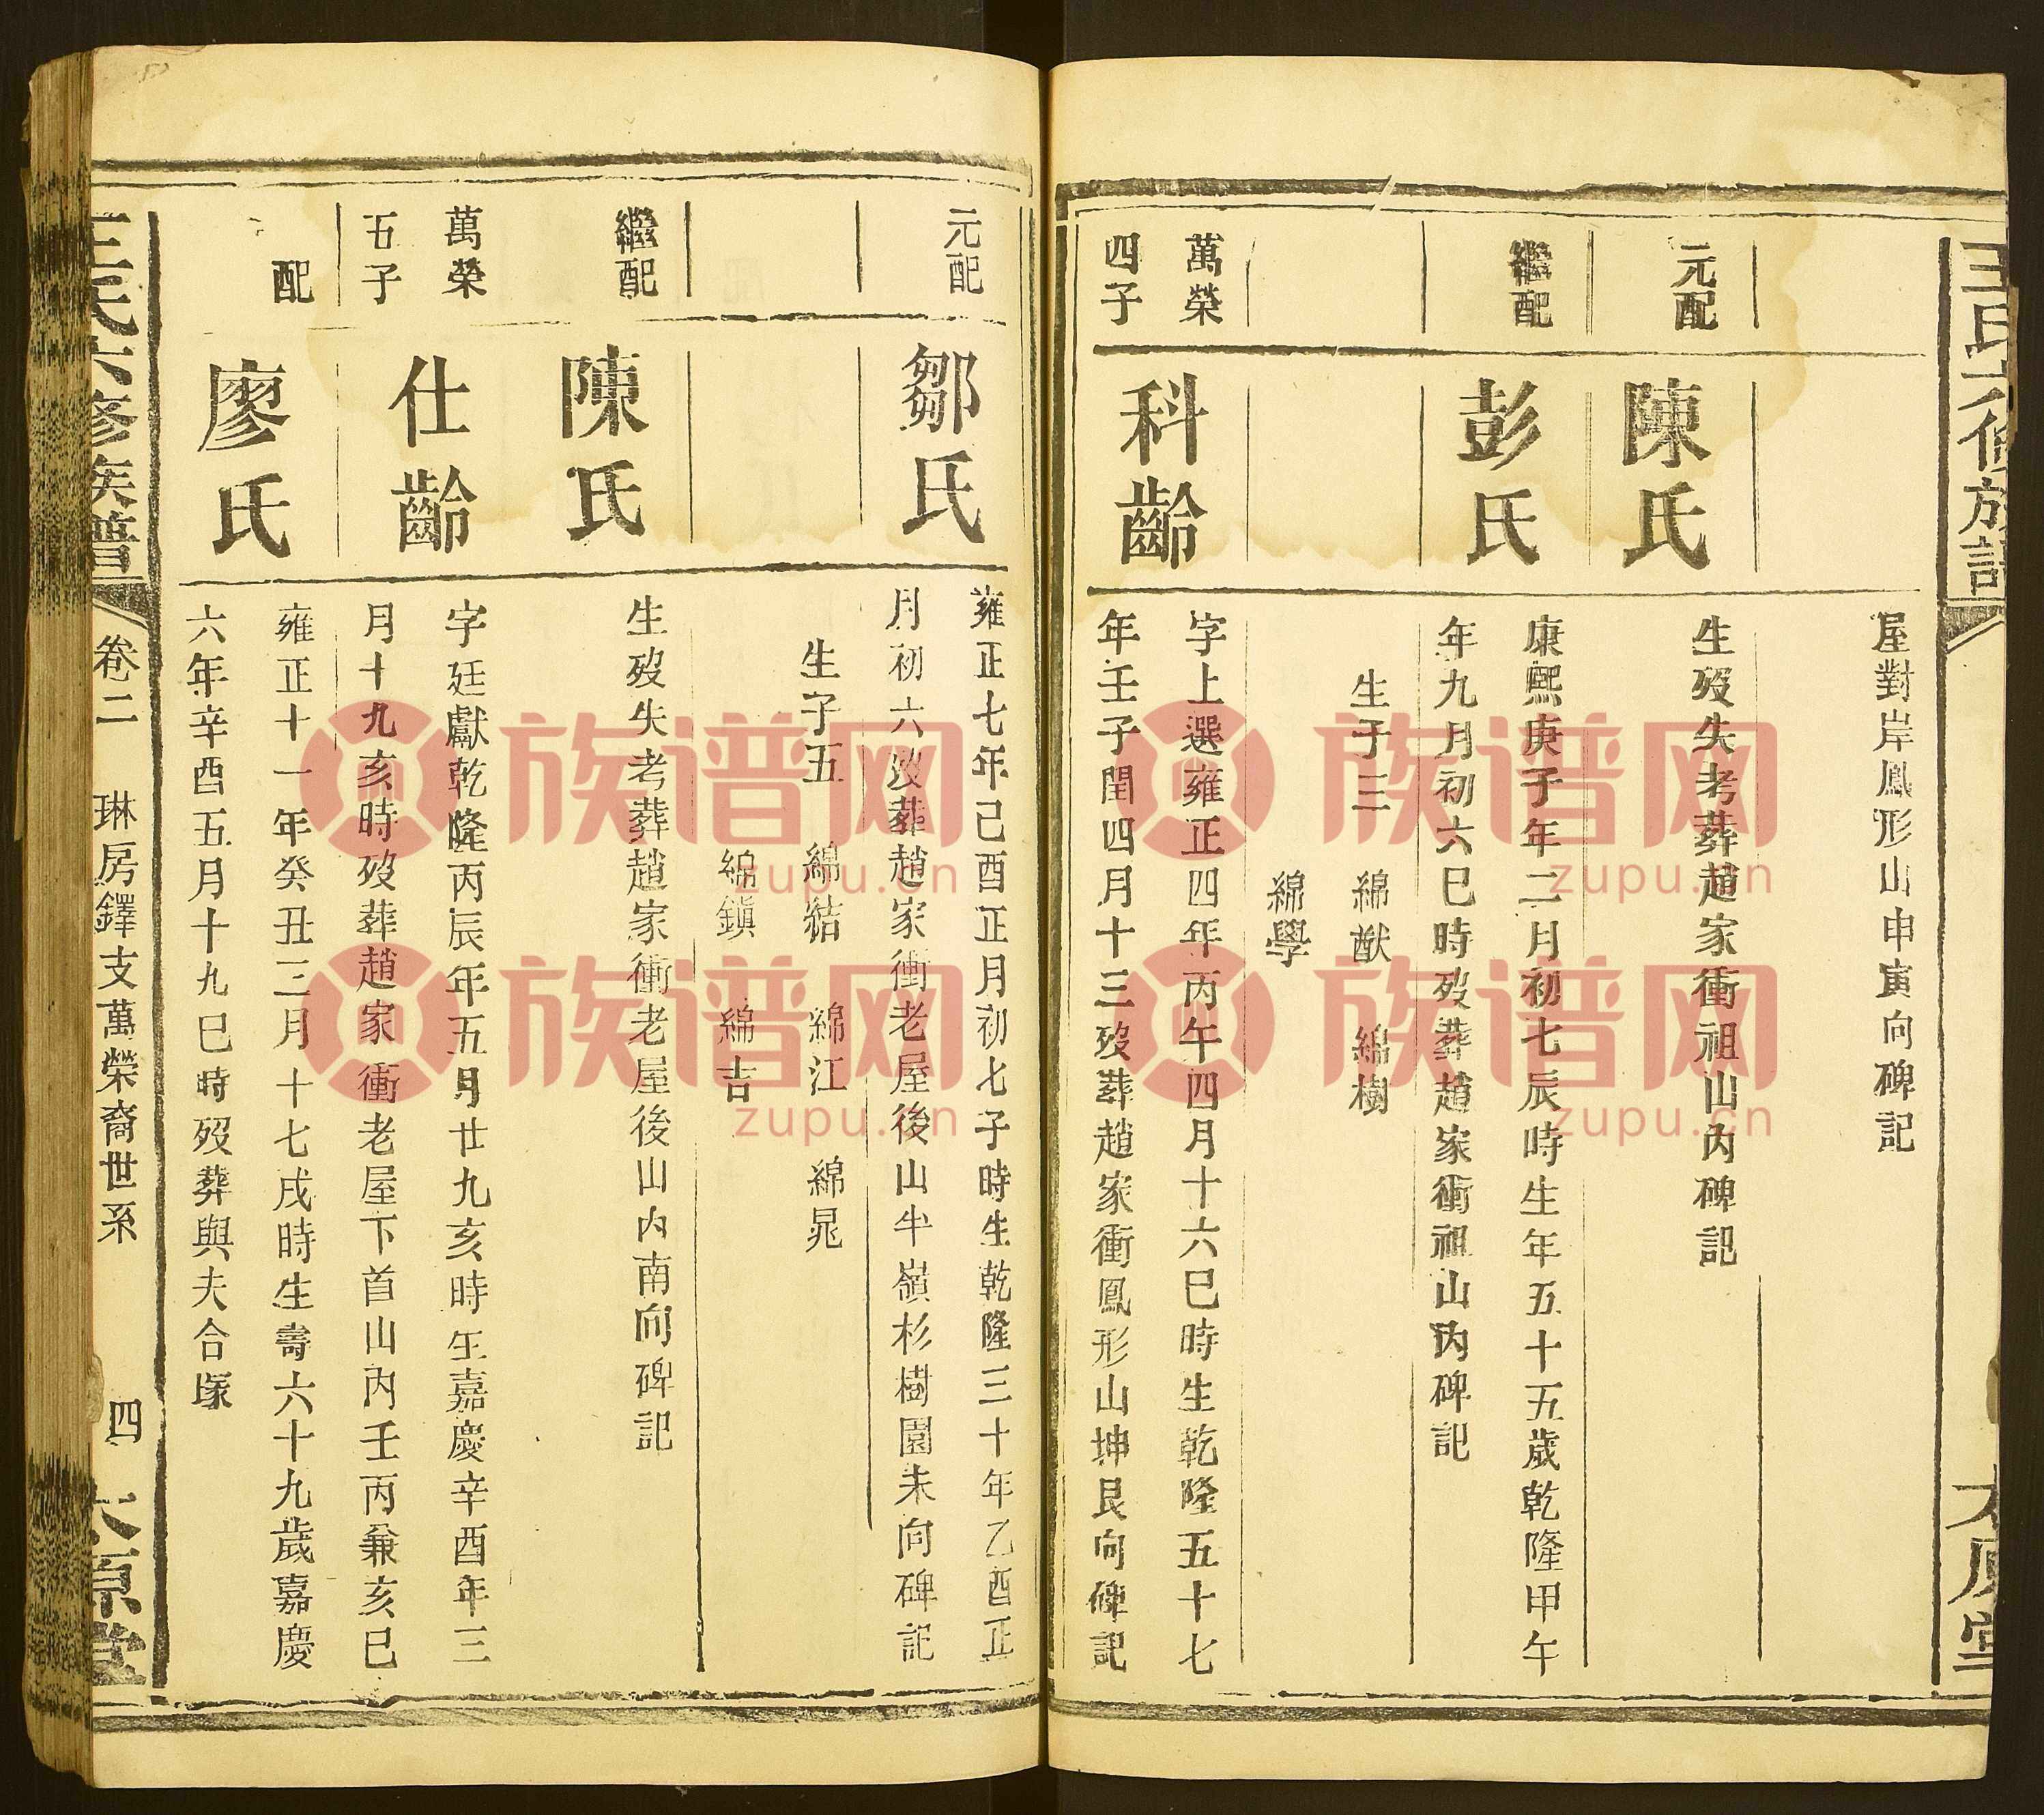 王氏六修族譜
太原堂
屋對岸鳳形山申寅向碑記
元配
陳氏
生歿失考葬趙家衝祖山內碑記
繼配
彭氏
康熙庚子年二月初七辰時生年五十五歲乾隆甲午
年九月初六巳時歿葬趙家衝祖山內碑記
生子三 綿猷 綿樹
綿學
萬榮
四子
科齡
字上選雍正四年丙午四月十六巳時生乾隆五十七
年壬子閏四月十三歿葬趙家衝鳳形山坤艮向碑記
元配
鄒氏
雍正七年己酉正月初七子時生乾隆三十年乙酉正
月初六歿葬趙家衝老屋後山半嶺杉樹園未向碑記
生子五 綿結 綿江 綿晁
綿鎮 綿吉
繼配
陳氏
生歿失考葬趙家衝老屋後山內南向碑記
萬榮
五子
仕齡
字廷獻乾隆丙辰年五月廿九亥時生嘉慶辛酉年三
月十九亥時歿葬趙家衝老屋下首山內壬丙兼亥巳
配
廖氏
雍正十一年癸丑三月十七戌時生壽六十九歲嘉慶
六年辛酉五月十九巳時歿葬與夫合塚
王氏六修族譜
卷二 琳房鐸支萬榮裔世系 四
太原堂
族谱网
zupu.cn
族谱网
zupu.cn
族谱网
zupu.cn
族谱网
zupu.cn